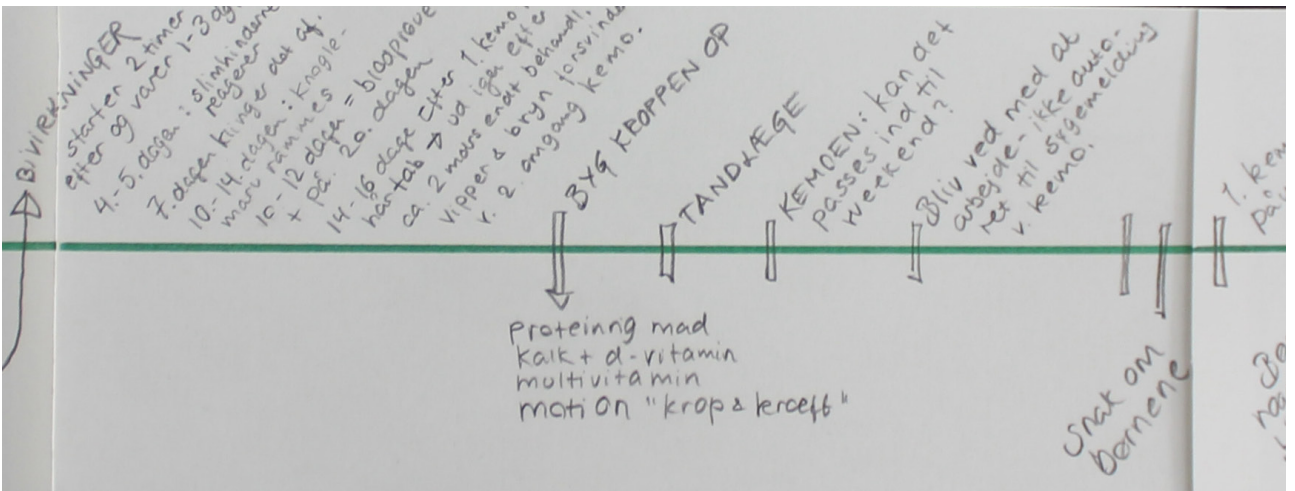 BIVIRKNINGER
starter 2 timer
efter og varer 1-3 dg
4.-5. dagen: slimhinderne
reagerer
7. dagen klinger det af.
10.-14. dagen: knogle-
marv rammes
10-12 dage = blodprøve
+ på 20. dagen
14-16 dage efter 1. kemo,
hårtab → ud igen efter
ca. 2 mdrs endt behandl.
vipper & bryn forsvinde
v. 2. omgang kemo.
BYG KROPPEN OP
proteinrig mad
kalk + d-vitamin
multivitamin
motion "krop & kræft"
TANDLÆGE
KEMOEN: kan det
passes ind til
weekend?
Bliv ved med at
arbejde - ikke auto-
ret til sygemelding
v. kemo.
Snak om
børnene
1. kem
På
Bo